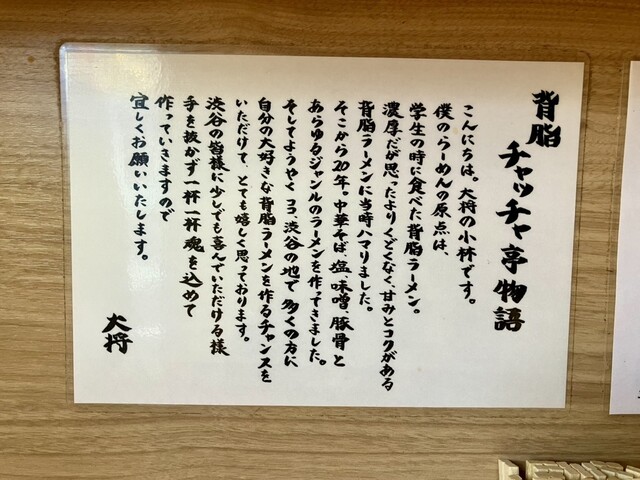 背脂
チャッチャ亭物語
こんにちは。大将の小林です。
僕のらーめんの原点は、
学生の時に食べた背脂ラーメン。
濃厚だが思ったよりくどくなく、甘みとコクがある
背脂ラーメンに当時ハマりました。
そこから20年。中華そば、塩、味噌、豚骨と
あらゆるジャンルのラーメンを作ってきました。
そしてようやくココ、渋谷の地で多くの方に
自分の大好きな背脂ラーメンを作るチャンスを
いただけて、とても嬉しく思っております。
渋谷の皆様に少しでも喜んでいただける様
手を抜かず一杯一杯魂を込めて
作っていきますので
宜しくお願いいたします。
大将